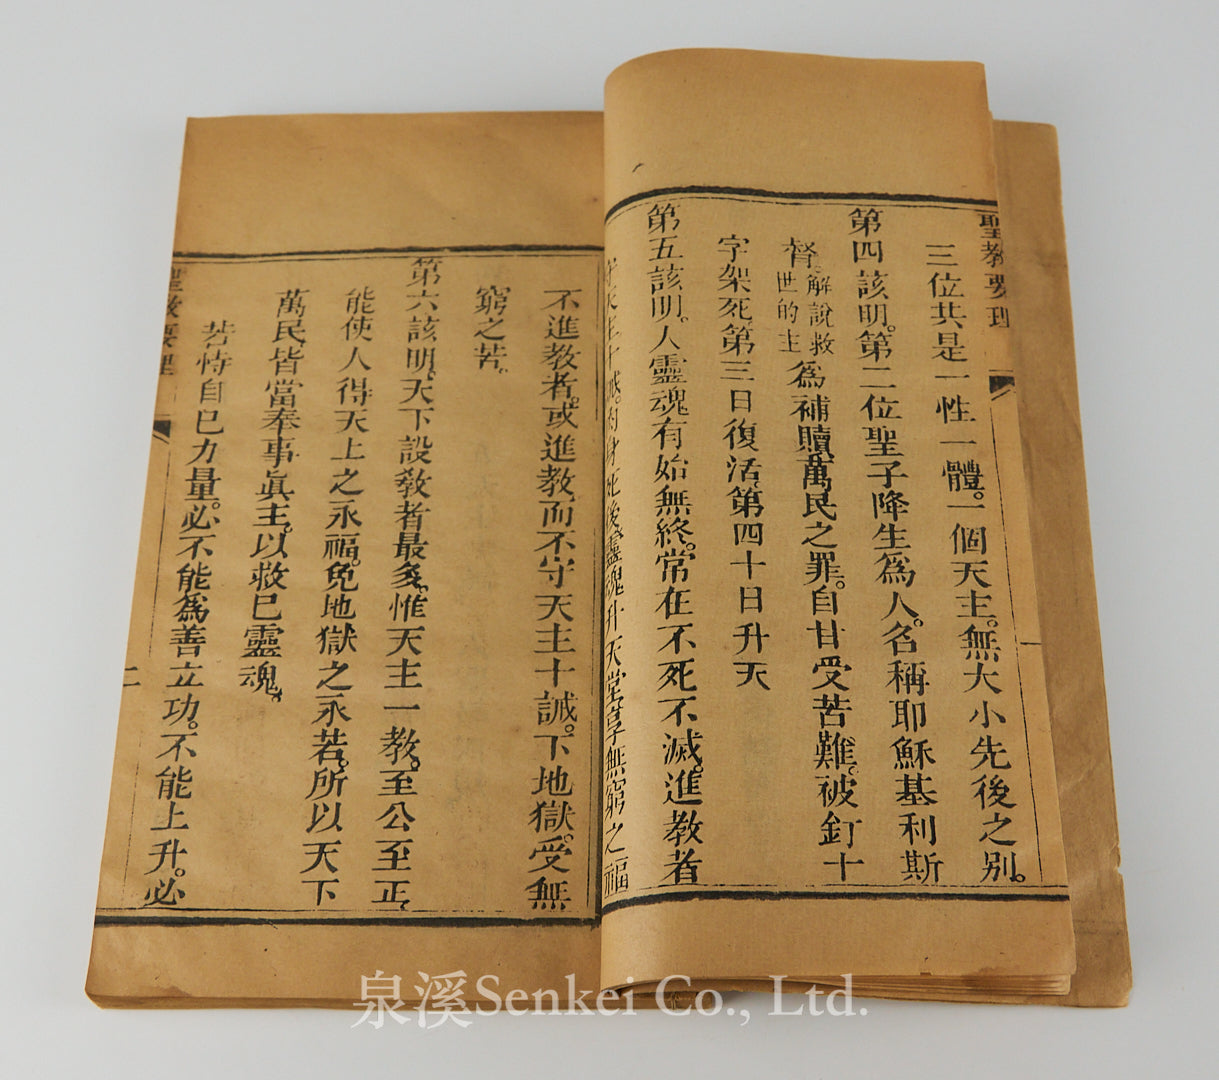 聖教要理
三位共是一性一體。一個天主。無大小先後之别。
第四該明。第二位聖子降生爲人。名稱耶穌基利斯
督。解說救世的主爲補贖萬民之罪。自甘受苦難。被釘十
字架死。第三日復活。第四十日升天
第五該明。人靈魂有始無終。常在不死不滅。進教者
守天主十誡。肉身死後靈魂升天堂享無窮之福
不進教者。或進教而不守天主十誡。下地獄。受無
窮之苦。
第六該明。天下設教者最多。惟天主一教。至公至正。
能使人得天上之永福。免地獄之永苦。所以天下
萬民皆當奉事眞主。以救已靈魂。
若恃自已力量。必不能爲善立功。不能上升。必
聖教要理
二
泉溪Senkei Co., Ltd.